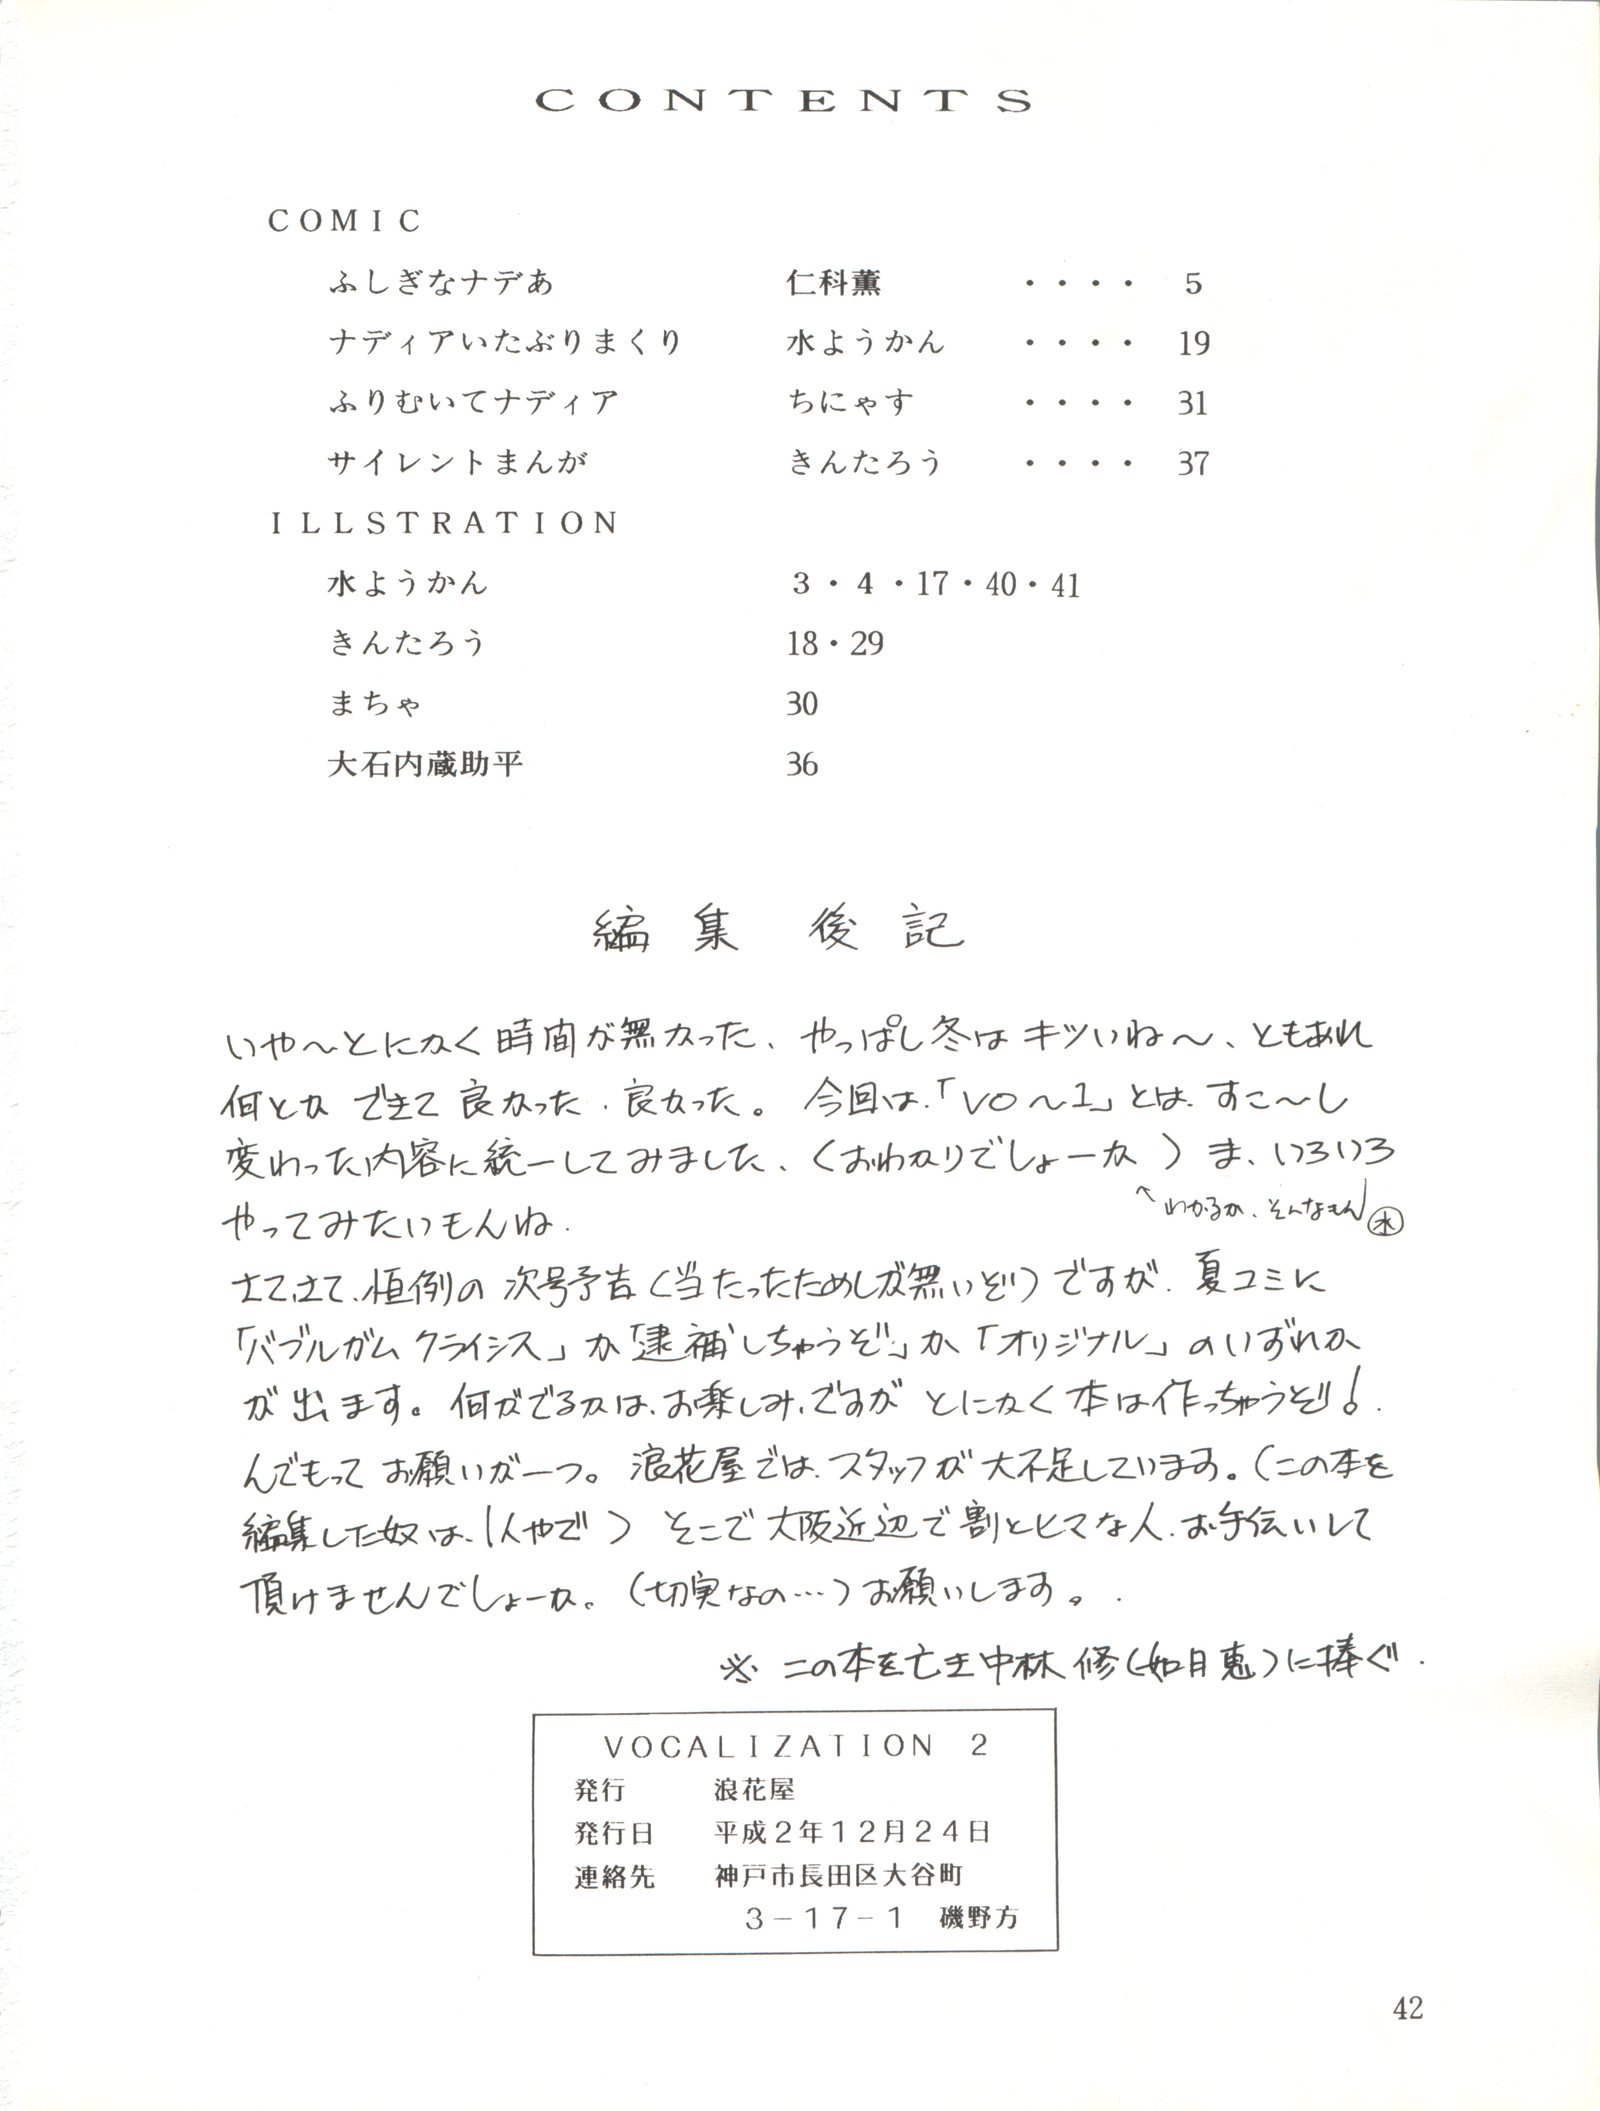 CONTENTS
COMIC
ふしぎなナデあ 仁科薫 ・・・・ 5
ナディアいたぶりまくり 水ようかん ・・・・ 19
ふりむいてナディア ちにゃす ・・・・ 31
サイレントまんが きんたろう ・・・・ 37
ILLSTRATION
水ようかん 3・4・17・40・41
きんたろう 18・29
まちゃ 30
大石内蔵助平 36
編集後記
いや〜とにかく時間が無かった、やっぱし冬はキツいね〜、ともあれ
何とか できて良かった、良かった。今回は、「VO〜1」とは、すこ〜し
変わった内容に統一してみました、(おわかりでしょーか)ま、いろいろ
↑わかるか、そんなもん㊌
やってみたいもんね.
さてさて、恒例の次号予告(当たったためしが無いぞ)ですが、夏コミに
「バブルガムクライシス」か「逮捕しちゃうぞ」か「オリジナル」のいずれか
が出ます。何がでるかは、お楽しみ、ですが とにかく本は作っちゃうぞ!.
んでもって お願いが一つ。浪花屋では、スタッフが大不足しています。(この本を
編集した奴は、1人やで) そこで大阪近辺で割とヒマな人、お手伝いして
頂けませんでしょーか。(切実なの…)お願いします。.
※ この本を亡き中林 修(如月恵)に捧ぐ.
VOCALIZATION 2
発行 浪花屋
発行日 平成2年12月24日
連絡先 神戸市長田区大谷町
3-17-1 磯野方
42